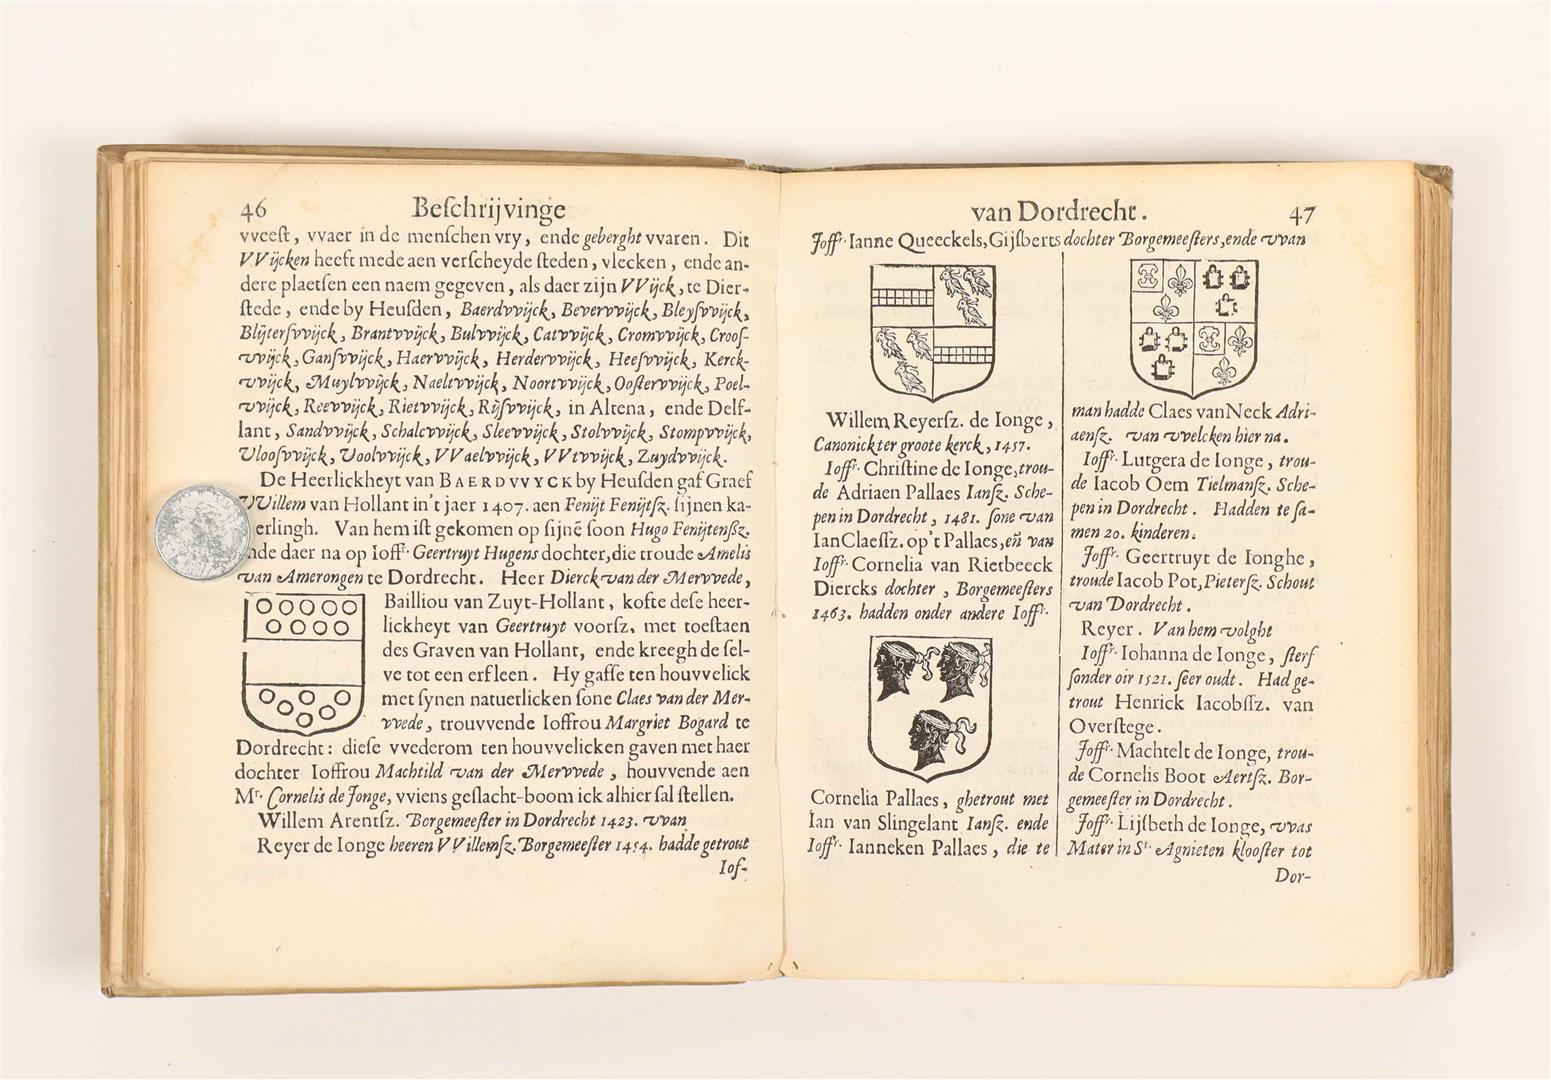 46 Beſchrijvinge
vveeſt, vvaer in de menſchen vry, ende geberght vvaren. Dit
VVijcken heeft mede aen verſcheyde ſteden, vlecken, ende an-
dere plaetſen een naem gegeven, als daer zijn VVijck, te Dier-
ſtede, ende by Heuſden, Baerdvvijck, Bevervvijck, Bleyſvvijck,
Blijterſvvijck, Brantvvijck, Bulvvijck, Catvvijck, Cromvvijck, Crooſ-
vvijck, Ganſvvijck, Haervvijck, Hervvijck, Heeſvvijck, Kerck-
vvijck, Muylvvijck, Naeltvvijck, Noortvvijck, Ooſtervvijck, Poel-
vvijck, Reevvijck, Rietvvijck, Rijſvvijck, in Altena, ende Delf-
lant, Sandvvijck, Schalcvvijck, Sleevvijck, Stolvvijck, Stompvvijck,
Vlooſvvijck, Voolvvijck, VVaelvvijck, VVtvvijck, Zuydvvijck.
De Heerlickheyt van BAERDVVYCK by Heuſden gaf Graef
VVillem van Hollant in't jaer 1407. aen Fenijt Fenijtſz. ſijnen ka-
erlingh. Van hem iſt gekomen op ſijnē ſoon Hugo Fenijtenſz.
nde daer na op Ioffr. Geertruyt Hugens dochter, die troude Amelis
van Amerongen te Dordrecht. Heer Dierck van der Mervvede,
Bailliou van Zuyt-Hollant, kofte deſe heer-
lickheyt van Geertruyt voorſz. met toeſtaen
des Graven van Hollant, ende kreegh de ſel-
ve tot een erfleen. Hy gaffe ten houvvelick
met ſynen natuerlicken ſone Claes van der Mer-
vvede, trouvvende Ioffrou Margriet Bogard te
Dordrecht: dieſe vvederom ten houvvelicken gaven met haer
dochter Ioffrou Machtild van der Mervvede, houvvende aen
Mr. Cornelis de Jonge, vviens geſlacht-boom ick alhier ſal ſtellen.
Willem Arentſz. Borgemeeſter in Dordrecht 1423. vvan
Reyer de Ionge heeren VVillemſz. Borgemeeſter 1454. hadde getrout
Iof-
van Dordrecht. 47
Joffr. Ianne Queeckels, Gijſberts dochter Borgemeeſters, ende vvan
Willem Reyerſz. de Ionge,
Canonick ter groote kerck, 1457.
Ioffr. Chriſtine de Ionge, trou-
de Adriaen Pallaes Ianſz. Sche-
pen in Dordrecht, 1481. ſone van
Ian Claeſſz. op't Pallaes, eñ van
Ioffr. Cornelia van Rietbeeck
Diercks dochter, Borgemeeſters
1463. hadden onder andere Ioffr.
Cornelia Pallaes, ghetrout met
Ian van Slingelant Ianſz. ende
Ioffr. Ianneken Pallaes, die te
man hadde Claes van Neck Adri-
aenſz. van vvelcken hier na.
Ioffr. Lutgera de Ionge, trou-
de Iacob Oem Tielmanſz. Sche-
pen in Dordrecht. Hadden te ſa-
men 20. kinderen.
Joffr. Geertruyt de Ionghe,
troude Iacob Pot, Pieterſz. Schout
van Dordrecht.
Reyer. Van hem volght
Ioffr. Iohanna de Ionge, ſterf
ſonder oir 1521. ſeer oudt. Had ge-
trout Henrick Iacobſſz. van
Overſtege.
Joffr. Machtelt de Ionge, trou-
de Cornelis Boot Aertſz. Bor-
gemeeſter in Dordrecht.
Joffr. Lijſbeth de Ionge, vvas
Mater in St. Agnieten klooſter tot
Dor-